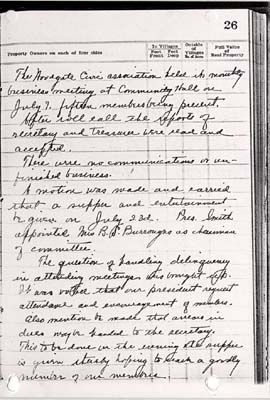 26
Property Owners on each of four sides
In Villages
Feet Front
Feet Deep
Outside of Villages
No. of Acres
Full Value of Real Property
The Woodgate Civic association held its monthly
business meeting at Community Hall on
July 7. fifteen members being present
After roll call the reports of
secretary and treasurer were read and
accepted.
There were no communications or un-
finished business.
A motion was made and carried
that a supper and entertainment
be given on July 23d. Pres. Smith
appointed Mrs B. Burroughs as chairman
of committee.
The question of handling delinquency
in attending meetings was brought up.
It was voted that our president request
attendance and encouragement of members.
Also mention be made that arrears in
dues may be handed to the secretary.
This to be done in the evening the supper
is given thereby hoping to reach a goodly
number of our members